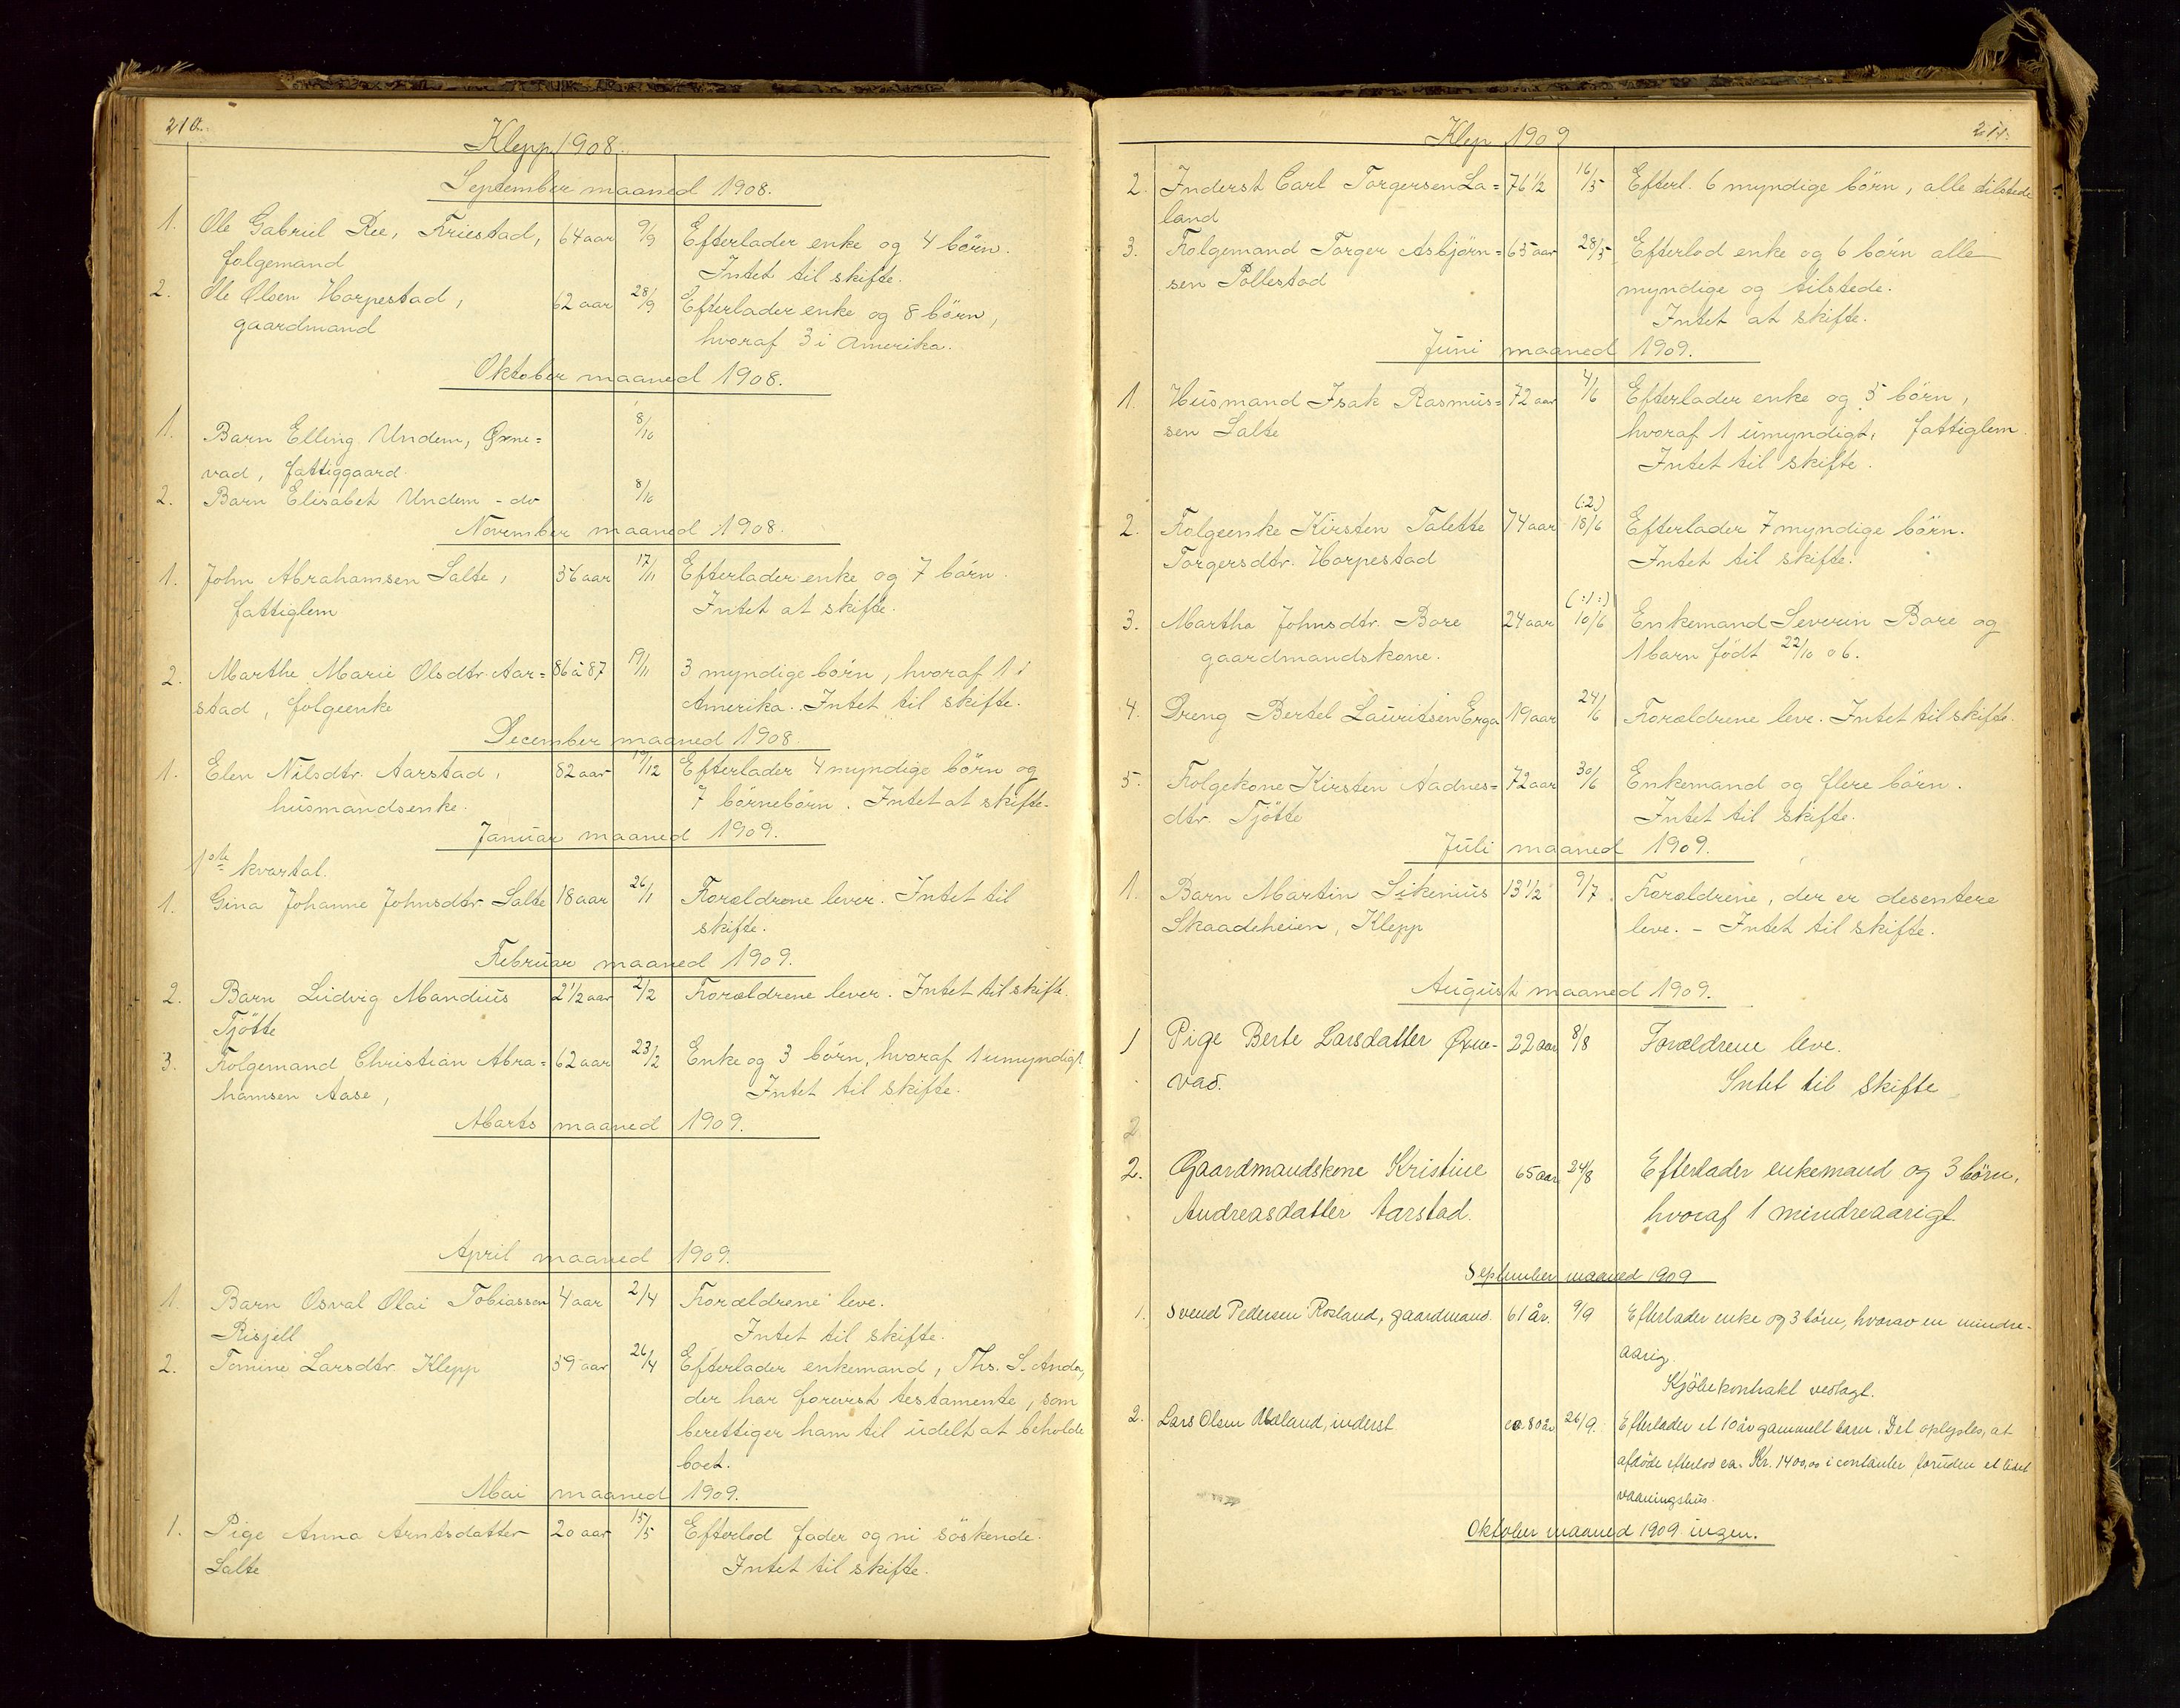 210.
Klepp 1908.
September maaned 1908.
1. Ole Gabriel Ree, Friestad, 64 aar 9/9 Efterlader enke og 4 börn.
folgemand Intet til skifte.
2. Ole Olsen Horpestad, 62 aar 28/9 Efterlader enke og 8 börn,
gaardmand hvoraf 3 i Amerika.
Oktober maaned 1908.
1. Barn Elling Undem, Øxne= 8/10
vad, fattiggaard
2. Barn Elisabet Undem - do 8/10
November maaned 1908.
1. John Abrahamsen Salte, 36 aar 17/11 Efterlader enke og 7 börn.
fattiglem Intet at skifte.
2. Marthe Marie Olsdtr. Aar= 86 à 87 19/11 3 myndige börn, hvoraf 1 i
stad, folgeenke Amerika. Intet til skifte.
December maaned 1908.
1. Elen Nilsdtr. Aarstad, 82 aar 19/12 Efterlader 4 myndige börn og
husmandsenke. 7 börnebörn. Intet at skifte.
Januar maaned 1909.
1ste kvartal.
1. Gina Johanne Johnsdtr. Salte 18 aar 26/1 Forældrene lever. Intet til
skifte.
Februar maaned 1909.
2. Barn Ludvig Mandius 2 1/2 aar 2/2 Forældrene lever. Intet til skifte.
Tjötte
3. Folgemand Christian Abra= 62 aar 23/2 Enke og 3 börn, hvoraf 1 umyndigt
hamsen Aase, Intet til skifte.
Marts maaned 1909.
April maaned 1909.
1. Barn Osval Olai Tobiassen 4 aar 2/4 Forældrene leve.
Risjell Intet til skifte.
2. Tomine Larsdtr. Klepp 59 aar 26/4 Efterlader enkemand, Ths. S. Anda,
der har forevist testamente, som
berettiger ham til udelt at beholde
boet.
Mai maaned 1909.
1. Pige Anna Arntsdatter 20 aar 15/5 Efterlod fader og ni söskende.
Salte Intet til skifte.
211.
Klep 1909
2. Inderst Carl Torgersen La= 76 1/2 16/5 Efterl. 6 myndige börn, alle tilstede
land
3. Folgemand Torger Asbjörn= 65 aar 28/5 Efterlod enke og 6 börn alle
sen Pollestad myndige og tilstede.
Intet at skifte.
Juni maaned 1909.
1. Husmand Isak Rasmus= 72 aar 4/6 Efterlader enke og 5 börn,
sen Salte hvoraf 1 umyndigt, fattiglem.
Intet til skifte.
(:2)
2. Folgeenke Kirsten Talette 74 aar 18/6 Efterlader 7 myndige börn.
Torgersdtr. Horpestad Intet til skifte.
(:1:)
3. Martha Johnsdtr. Bore 24 aar 10/6 Enkemand Severin Bore og
gaardmandskone. 1 barn født 22/10 06.
4. Dreng Bertel Lauritsen Erga 19 aar 24/6 Forældrene leve. Intet til skifte.
5. Folgekone Kirsten Aadnes= 72 aar 30/6 Enkemand og flere börn.
dtr. Tjötte Intet til skifte.
Juli maaned 1909.
1. Barn Martin Sikenius 13 1/2 9/7 Forældrene, der er desentere
Skaadeheien, Klepp leve. - Intet til skifte.
August maaned 1909.
1 Pige Berte Larsdatter Øxne- 22 aar 8/8 Forældrene leve.
vad. Intet til skifte
2
2. Gaardmandskone Kristine 65 aar 24/8 Efterlader enkemand og 3 börn,
Andreasdatter Aarstad. hvoraf 1 mindreaarigt.
September maaned 1909
1. Svend Pedersen Rosland, gaardmand. 61 år. 9/9 Efterlader enke og 3 börn, hvorav en mindre-
aarig.
Kjöbekontrakt vedlagt.
2. Lars Olsen inderst ca. 80 år 26/9. Efterlader et 10 år gammelt barn. Det oplystes, at
afdöde efterlod ca. Kr. 1400,00 i contanter foruden et lidet
vaaningshus.
Oktober maaned 1909 ingen.